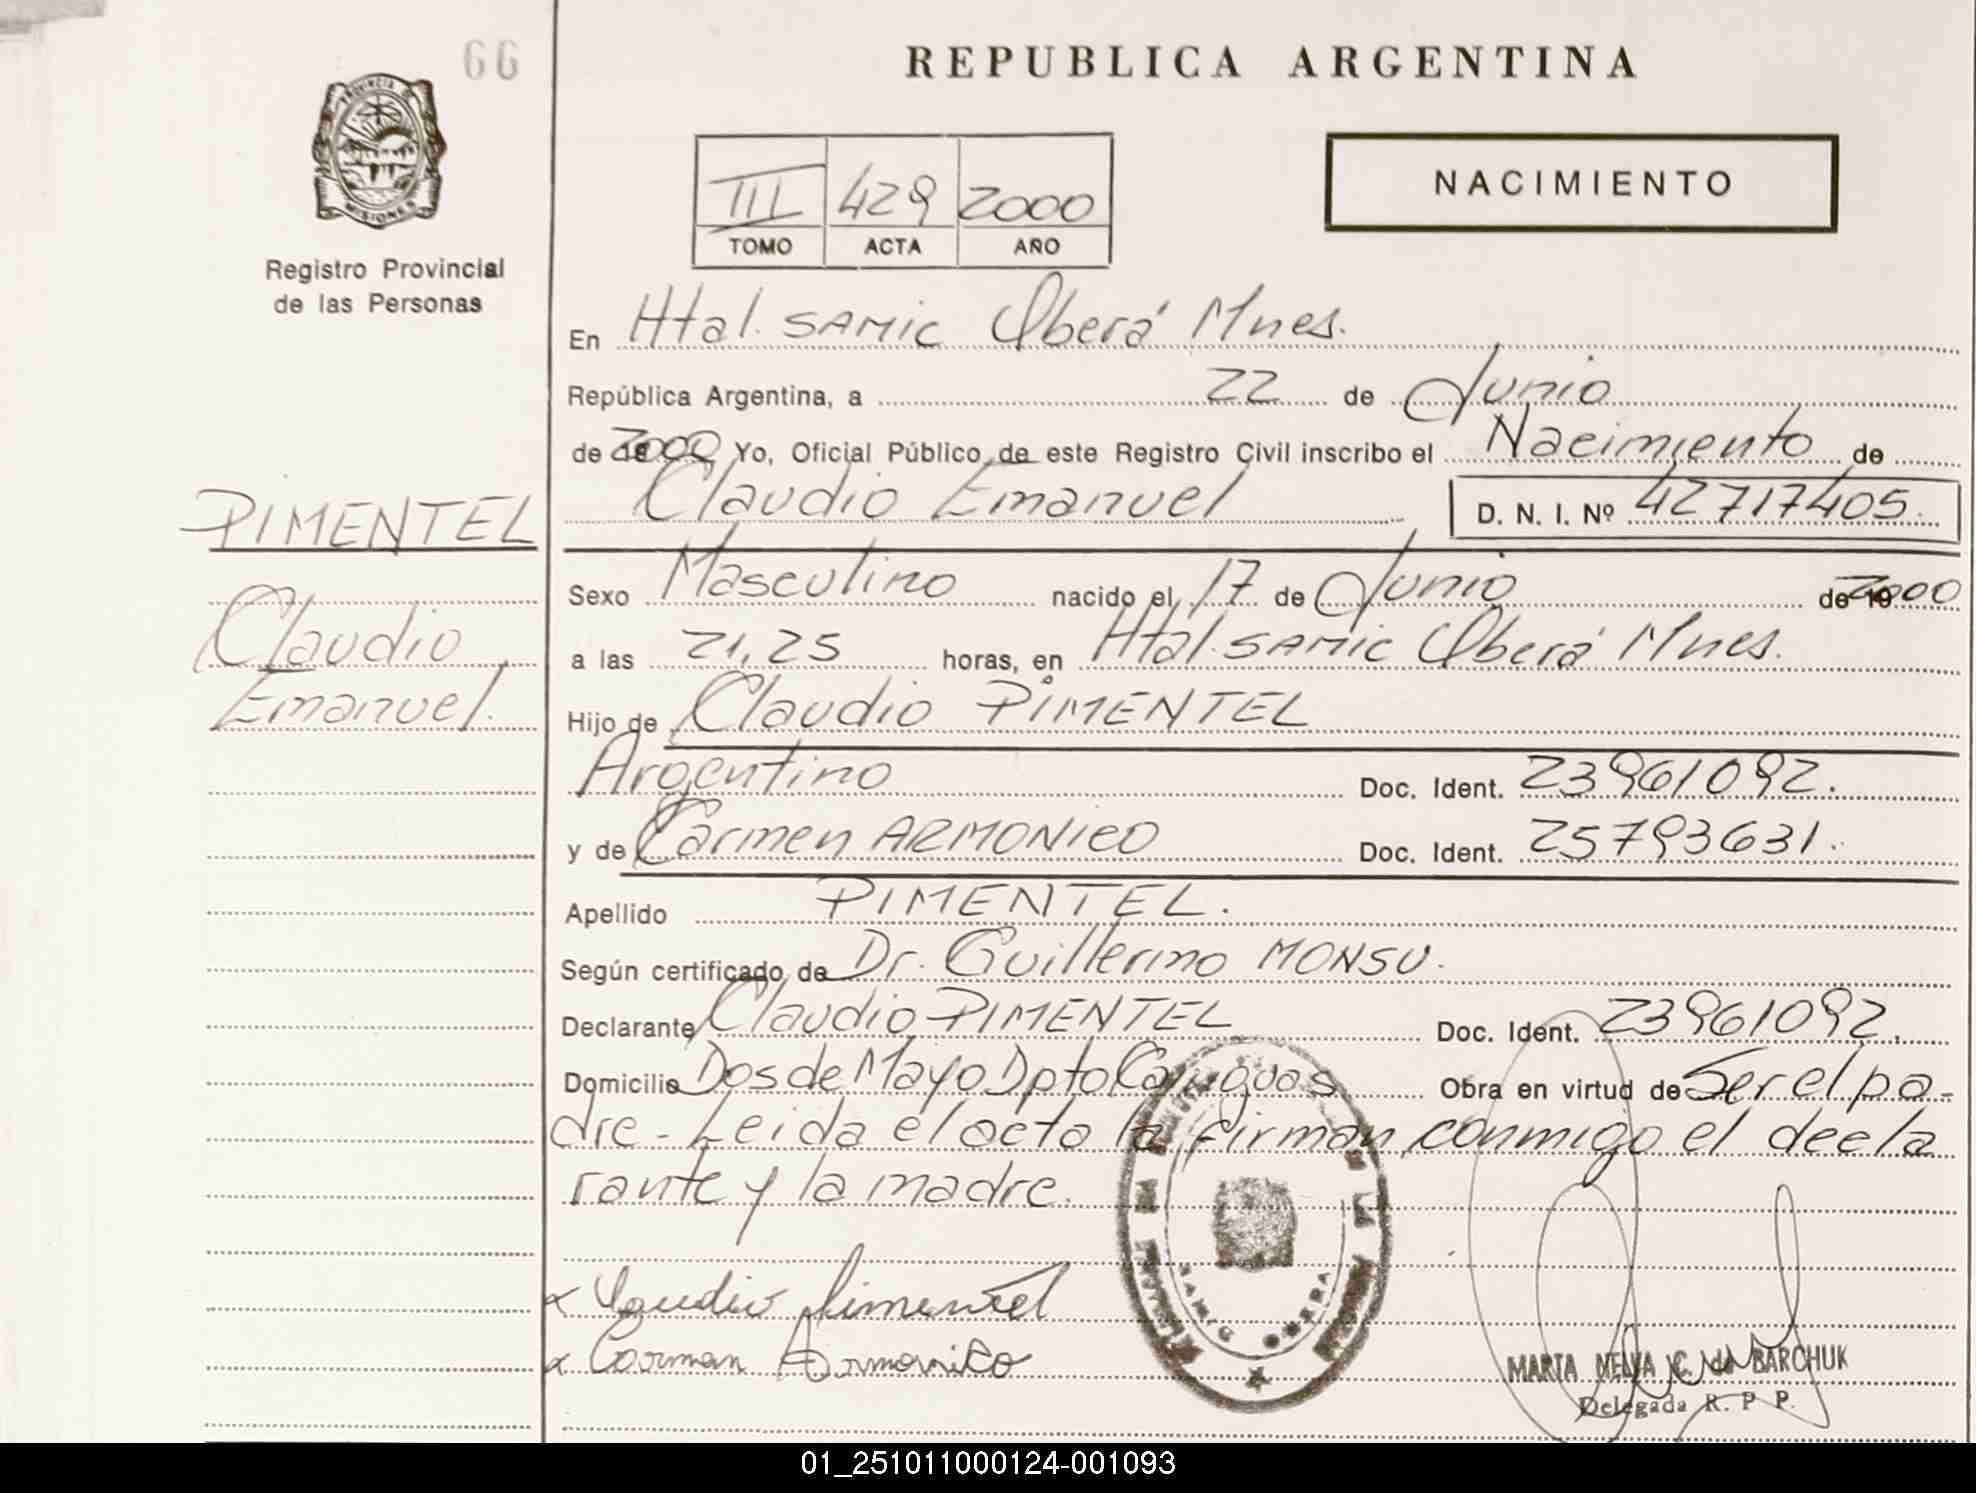 66
REPUBLICA ARGENTINA
PROVINCIA DE
MISIONES
Registro Provincial
de las Personas
III 429 2000
TOMO ACTA AÑO
NACIMIENTO
En Htal. SAMIC Oberá Mnes.
República Argentina, a 22 de Junio
de 2000 Yo, Oficial Público de este Registro Civil inscribo el Nacimiento de
Claudio Emanuel D. N. I. Nº 42717405.
PIMENTEL
Claudio
Emanuel.
Sexo Masculino nacido el 17 de Junio de 19 2000
a las 21,25 horas, en Htal. SAMIC Oberá Mnes.
Hijo de Claudio PIMENTEL
Argentino Doc. Ident. 23961092.
y de Carmen ARMONICO Doc. Ident. 25793631.
Apellido PIMENTEL.
Según certificado de Dr. Guillermo MONSU.
Declarante Claudio PIMENTEL Doc. Ident. 23961092.
Domicilio Dos de Mayo Dpto Cainguas Obra en virtud de Ser el pa-
dre - Leida el acta la firman conmigo el decla
rante y la madre.
Claudio Pimentel
Carman Armonico
SAMIC OBERA
MARTA NELVA C. de BARCHUK
Delegada R. P. P.
01_251011000124-001093